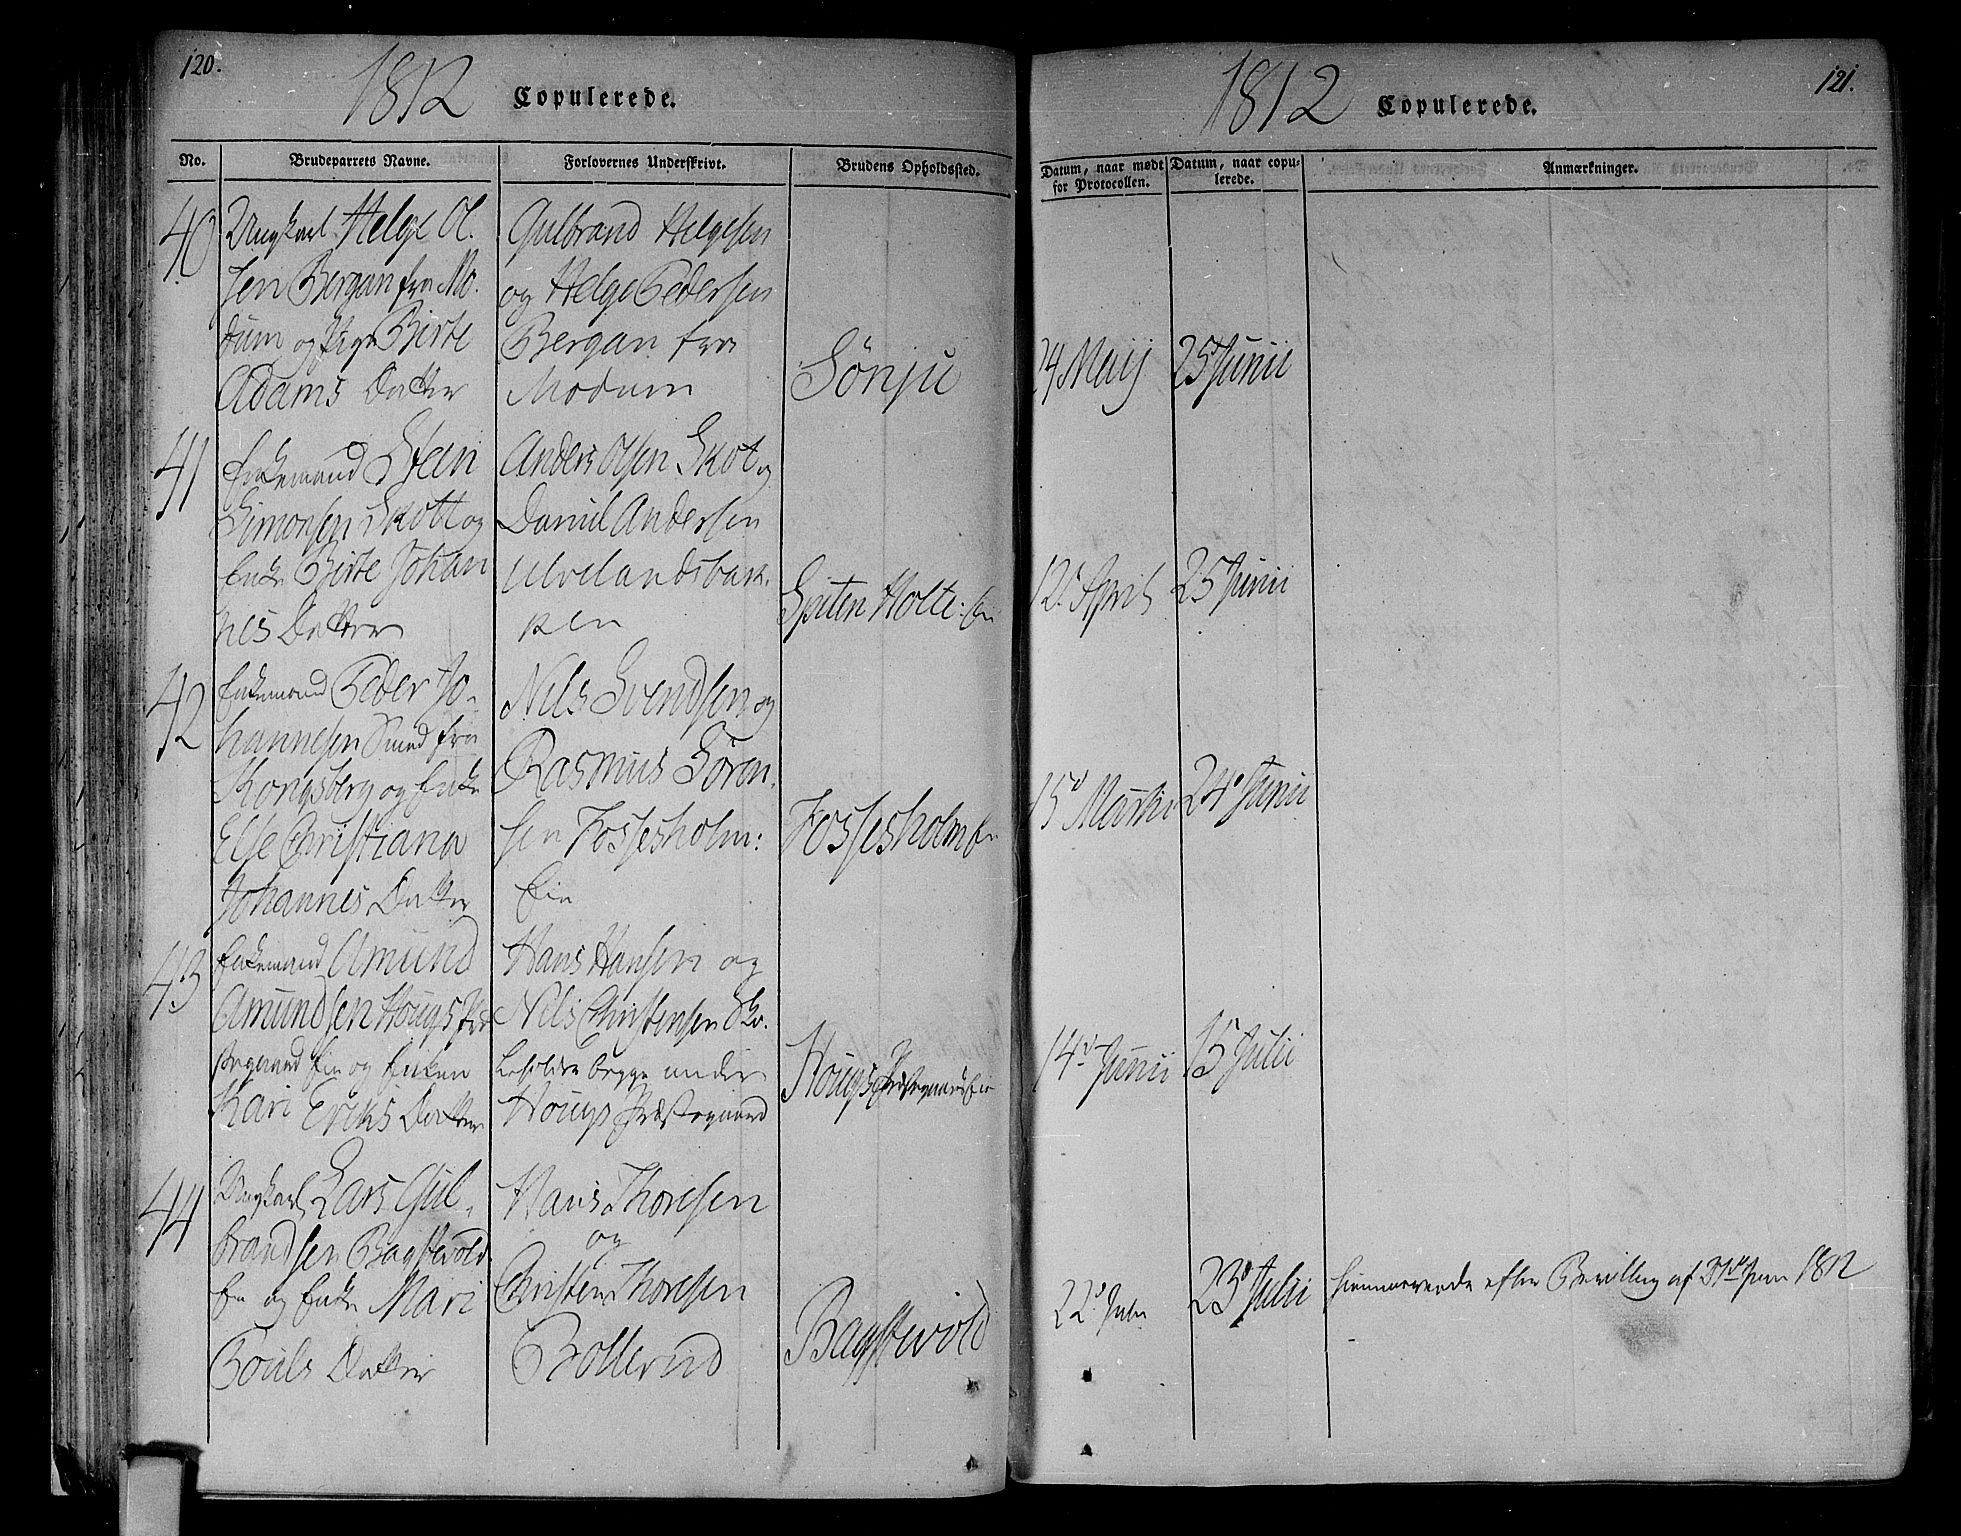 120.
1812
Copulerede.
No.
Brudeparrets Navne.
Forlovernes Underskrivt.
Brudens Opholdssted.
40
Ungkarl Helge Ol.
sen Bergan fra Mo.
dum og Pige Birte
Adams Datter
Gulbrand Helgesen
og Helge Pedersen
Bergan fra
Modum
Sønju
41
Enkemand Steen
Simonsen Skott og
Enke Birte Johan
nes Datter
Anders Olsen Skot og
Daniel Andersen
Ulvelandsbak.
ken
Spiten Holte:
42
Enkemand Peder Jo-
hannesen Smed fra
Kongsberg og Enke
Else Christiana
Johannes Datter
Nils Svendsen og
Rasmus Søren.
sen Fossesholm:
Eie
Fossesholm
43
Enkemand Amund
Amundsen Hougs Præ
stegaard Eie og Enken
Kari Eriks Datter
Hans Hansen og
Nils Christensen Sko.
begge under
Hougs Præstegaard
Hougs Præstegaards Eie
44
Ungkarl Lars Gul.
brandsen Bagstevold
Eie og Enke Mari
Pouls Datter
Hans Thoresen
og
Christen Thoresen
Bollerud
Bagstevold
121.
1812
Copulerede.
Datum, naar mødt
for Protocollen.
Datum, naar copu-
lerede.
Anmærkninger.
24 Maij
25 Junii
12. April
25 Junii
15 Martii
24 Junii
14 Junii
15 Julii
22
23 Julii
efter Bevilling af 1812